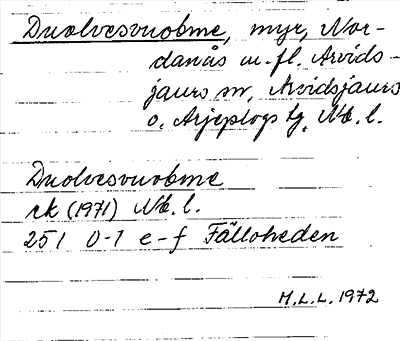 Duolvesvuobme, myr, Nor-
danås m.fl. Arvids-
jaurs sn, Arvidsjaurs
o. Arjeplogs tg, Nb. l.
Duolvesvuobme
rk (1971) Nb. l.
251 0-1 e-f Fälloheden
M.L.L. 1972